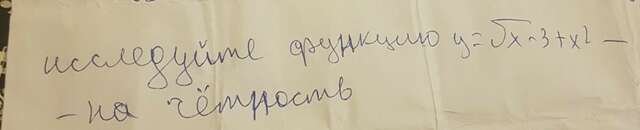 исследуйте функцию y=√x-3+x² —
- на чётность